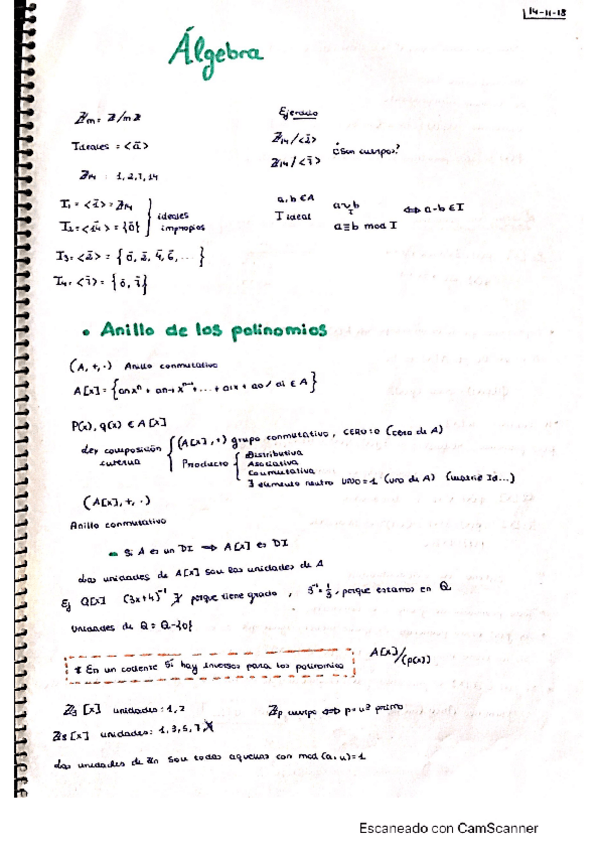 14-11-18
Álgebra
ℤm = ℤ/mℤ
Ideales = <ā>
ℤ14 : 1, 2, 7, 14
I1 = <1̄> = ℤ14
I2 = <14> = {0̄}
ideales impropios
I3 = <2̄> = {0̄, 2̄, 4̄, 6̄, ... }
I4 = <7̄> = {0̄, 7̄}
Ejercicio
ℤ14/<2̄>
ℤ14/<7̄>
¿Son cuerpos?
a, b ∈ A
I ideal
a ~ b
I
a ≡ b mod I
⇔ a-b ∈ I
• Anillo de los polinomios
(A, +, ·) Anillo conmutativo
A[x] = {anxⁿ + an-1xⁿ⁻¹ + ... + a1x + a0 / ai ∈ A}
P(x), q(x) ∈ A[x]
Ley composición interna
(A[x], +) grupo conmutativo, CERO: 0 (cero de A)
Producto
Distributiva
Asociativa
Conmutativa
∃ elemento neutro UNO = 1 (uno de A) (matriz Id...)
(A[x], +, ·)
Anillo conmutativo
Si A es un DI ⟹ A[x] es DI
Las unidades de A[x] son las unidades de A
Ej Q[x] (3x+4)⁻¹ ∄ porque tiene grado, 3⁻¹ = 1/3, porque estamos en Q
Unidades de Q = Q-{0}
* En un cociente sí hay inversos para los polinomios
A[x]/(p(x))
ℤ3 [x] unidades: 1, 2
ℤp cuerpo ⇔ p = nº primo
ℤ8 [x] unidades: 1, 3, 5, 7
Las unidades de ℤn son todas aquellas con mcd (a, n) = 1
Escaneado con CamScanner